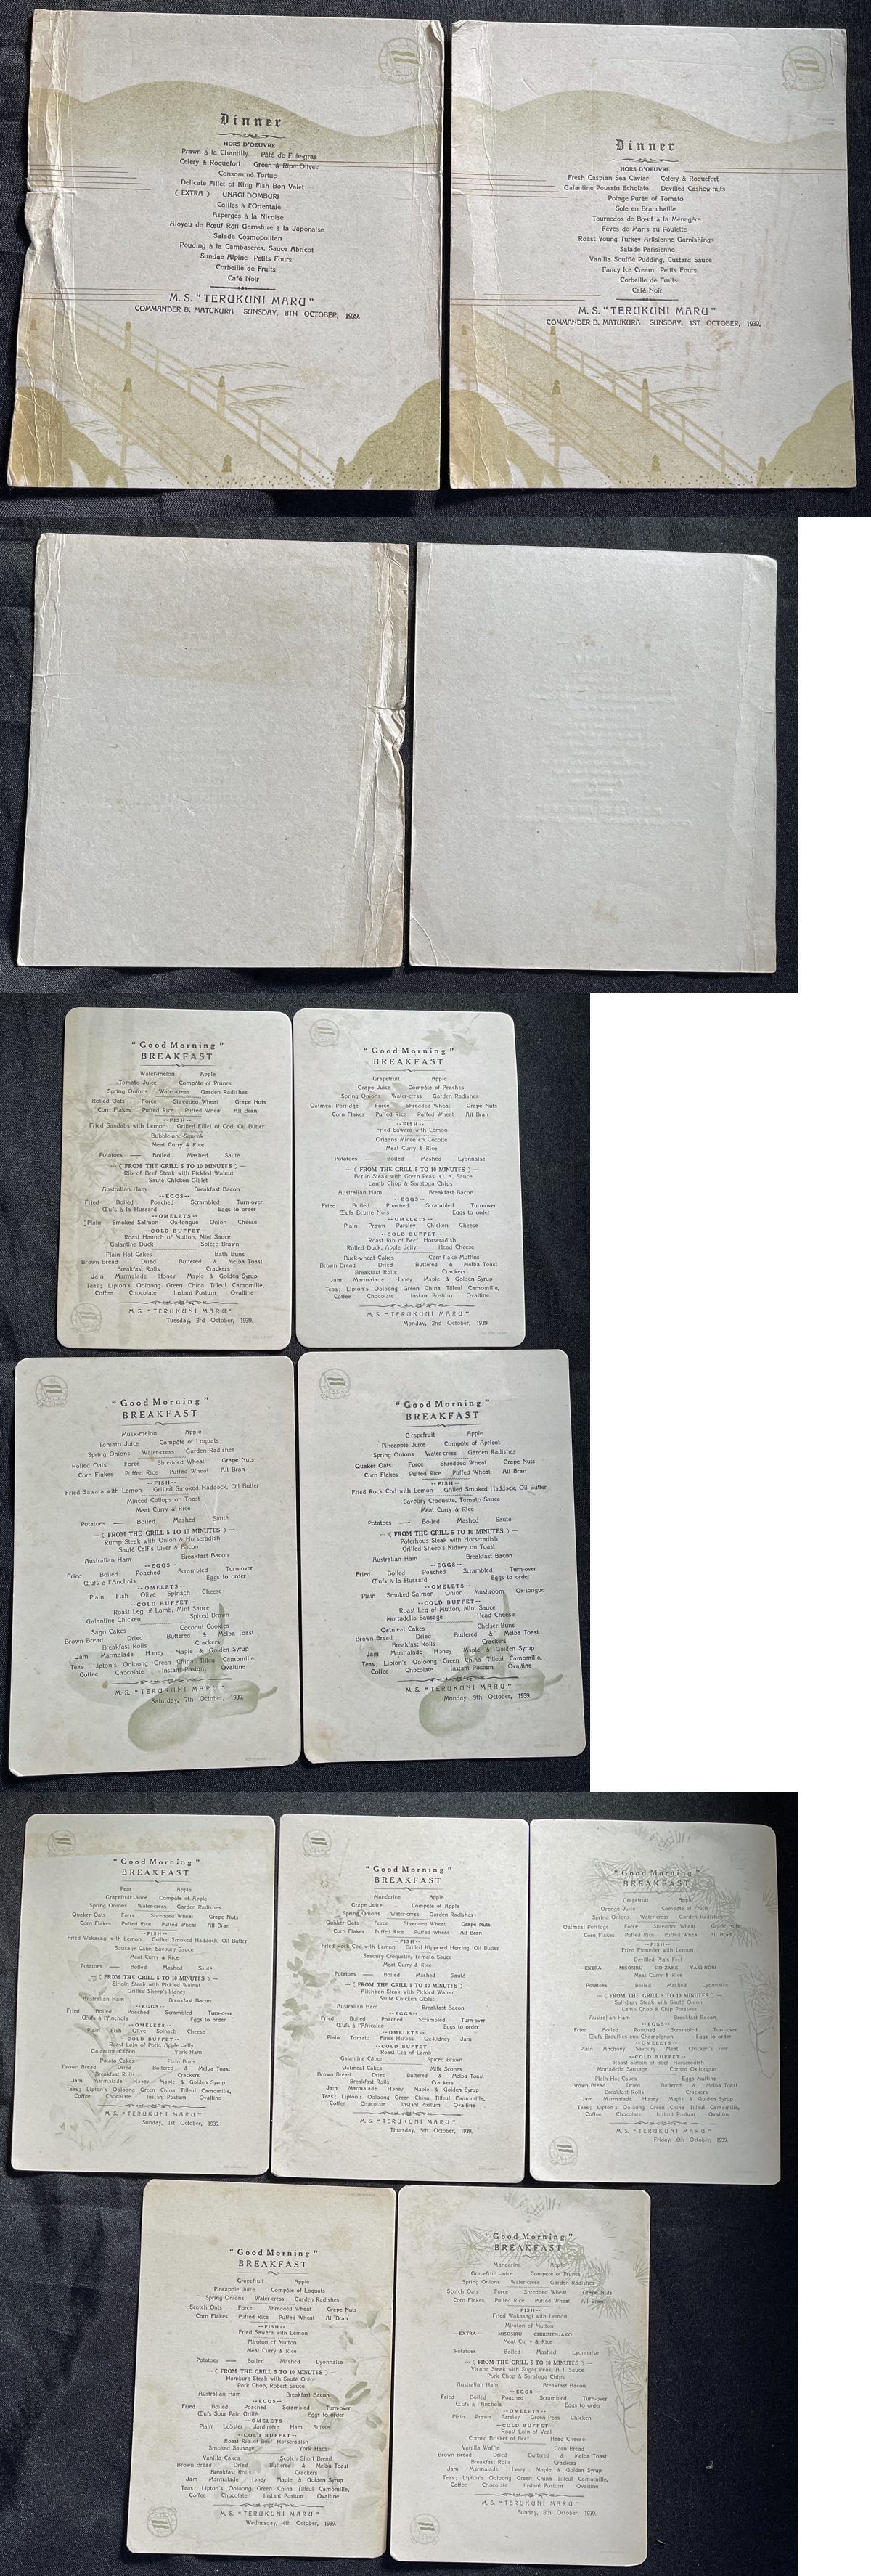 Dinner
HORS D'OEUVRE
Prawn à la Chantilly Pâté de Foie-gras
Celery & Roquefort Green & Ripe Olives
Consommé Tortue
Delicate Fillet of King Fish Bon Valet
( EXTRA ) UNAGI DOMBURI
Cailles à l'Orientale
Asperges à la Nicoise
Aloyau de Bœuf Rôti Garniture à la Japonaise
Salade Cosmopolitan
Pouding à la Cambaseres, Sauce Abricot
Sundae Alpine Petits Fours
Corbeille de Fruits
Café Noir
M. S. "TERUKUNI MARU"
COMMANDER B. MATUKURA SUNSDAY, 8TH OCTOBER, 1939.
Dinner
HORS D'OEUVRE
Fresh Caspian Sea Caviar Celery & Roquefort
Galantine Poussin Devilled Cashew-nuts
Potage Purée of Tomato
Sole en Branchaille
Tournedos de Bœuf à la Ménagère
Fèves de Maris au Poulette
Roast Young Turkey Arlisienne Garnishings
Salade Parisienne
Vanilla Soufflé Pudding, Custard Sauce
Fancy Ice Cream Petits Fours
Corbeille de Fruits
Café Noir
M. S. "TERUKUNI MARU"
COMMANDER B. MATUKURA SUNSDAY, 1ST OCTOBER, 1939.
"Good Morning"
BREAKFAST
Water-melon Apple
Tomato Juice Compôte of Prunes
Spring Onions Water-cress Garden Radishes
Rolled Oats Force Shredded Wheat Grape Nuts
Corn Flakes Puffed Rice Puffed Wheat All Bran
--FISH--
Fried with Lemon Grilled Fillet of Cod, Oil Butter
Bubble-and-Squeak
Meat Curry & Rice
Potatoes — Boiled Mashed Sauté
—( FROM THE GRILL 5 TO 10 MINUTES )—
Rib of Beef Steak with Pickled Walnut
Sauté Chicken Giblet
Australian Ham Breakfast Bacon
--EGGS--
Fried Boiled Poached Scrambled Turn-over
Œufs à la Hussard Eggs to order
--OMELETS--
Plain Smoked Salmon Ox-tongue Onion Cheese
--COLD BUFFET--
Roast Haunch of Mutton, Mint Sauce
Galantine Duck Spiced Brawn
Plain Hot Cakes Bath Buns
Brown Bread Dried Buttered & Melba Toast
Breakfast Rolls Crackers
Jam Marmalade Honey Maple & Golden Syrup
Teas; Lipton's Ooloong Green China Tilleul Camomille,
Coffee Chocolate Instant Postum Ovaltine
M. S. "TERUKUNI MARU"
Tuesday, 3rd October, 1939.
"Good Morning"
BREAKFAST
Grapefruit Apple
Grape Juice Compôte of Peaches
Spring Onions Water-cress Garden Radishes
Oatmeal Porridge Force Shredded Wheat Grape Nuts
Corn Flakes Puffed Rice Puffed Wheat All Bran
--FISH--
Fried Sawara with Lemon
Orleans Mince en Cocotte
Meat Curry & Rice
Potatoes — Boiled Mashed Lyonnaise
—( FROM THE GRILL 5 TO 10 MINUTES )—
Berlin Steak with Green Peas' O. K. Sauce
Lamb Chop & Saratoga Chips
Australian Ham Breakfast Bacon
--EGGS--
Fried Boiled Poached Scrambled Turn-over
Œufs Beurre Noir Eggs to order
--OMELETS--
Plain Prawn Parsley Chicken Cheese
--COLD BUFFET--
Roast Rib of Beef Horseradish
Rolled Duck, Apple Jelly Head Cheese
Buck-wheat Cakes Corn-flake Muffins
Brown Bread Dried Buttered & Melba Toast
Breakfast Rolls Crackers
Jam Marmalade Honey Maple & Golden Syrup
Teas; Lipton's Ooloong Green China Tilleul Camomille,
Coffee Chocolate Instant Postum Ovaltine
M. S. "TERUKUNI MARU"
Monday, 2nd October, 1939.
"Good Morning"
BREAKFAST
Musk-melon Apple
Tomato Juice Compôte of Loquats
Spring Onions Water-cress Garden Radishes
Rolled Oats Force Shredded Wheat Grape Nuts
Corn Flakes Puffed Rice Puffed Wheat All Bran
--FISH--
Fried Sawara with Lemon Grilled Smoked Haddock, Oil Butter
Minced Collops on Toast
Meat Curry & Rice
Potatoes — Boiled Mashed Sauté
—( FROM THE GRILL 5 TO 10 MINUTES )—
Rump Steak with Onion & Horseradish
Sauté Calf's Liver & Bacon
Australian Ham Breakfast Bacon
--EGGS--
Fried Boiled Poached Scrambled Turn-over
Œufs à l'Anchois Eggs to order
--OMELETS--
Plain Fish Olive Spinach Cheese
--COLD BUFFET--
Roast Leg of Lamb, Mint Sauce
Galantine Chicken Spiced Brawn
Sago Cakes Coconut Cookies
Brown Bread Dried Buttered & Melba Toast
Breakfast Rolls Crackers
Jam Marmalade Honey Maple & Golden Syrup
Teas; Lipton's Ooloong Green China Tilleul Camomille,
Coffee Chocolate Instant Postum Ovaltine
M. S. "TERUKUNI MARU"
Saturday, 7th October, 1939.
"Good Morning"
BREAKFAST
Grapefruit Apple
Pineapple Juice Compôte of Apricot
Spring Onions Water-cress Garden Radishes
Quaker Oats Force Shredded Wheat Grape Nuts
Corn Flakes Puffed Rice Puffed Wheat All Bran
--FISH--
Fried Rock Cod with Lemon Grilled Smoked Haddock, Oil Butter
Savoury Croquette, Tomato Sauce
Meat Curry & Rice
Potatoes — Boiled Mashed Sauté
—( FROM THE GRILL 5 TO 10 MINUTES )—
Poterhous Steak with Horseradish
Grilled Sheep's Kidney on Toast
Australian Ham Breakfast Bacon
--EGGS--
Fried Boiled Poached Scrambled Turn-over
Œufs à la Hussard Eggs to order
--OMELETS--
Plain Smoked Salmon Onion Mushroom Ox-tongue
--COLD BUFFET--
Roast Leg of Mutton, Mint Sauce
Mortadella Sausage Head Cheese
Oatmeal Cakes Chelser Buns
Brown Bread Dried Buttered & Melba Toast
Breakfast Rolls Crackers
Jam Marmalade Honey Maple & Golden Syrup
Teas; Lipton's Ooloong Green China Tilleul Camomille,
Coffee Chocolate Instant Postum Ovaltine
M. S. "TERUKUNI MARU"
Monday, 9th October, 1939.
"Good Morning"
BREAKFAST
Pear Apple
Grapefruit Juice Compôte of Apple
Spring Onions Water-cress Garden Radishes
Quaker Oats Force Shredded Wheat Grape Nuts
Corn Flakes Puffed Rice Puffed Wheat All Bran
--FISH--
Fried Wakasagi with Lemon Grilled Smoked Haddock, Oil Butter
Sausage Cake, Savoury Sauce
Meat Curry & Rice
Potatoes — Boiled Mashed Sauté
—( FROM THE GRILL 5 TO 10 MINUTES )—
Sirloin Steak with Pickled Walnut
Grilled Sheep's-kidney
Australian Ham Breakfast Bacon
--EGGS--
Fried Boiled Poached Scrambled Turn-over
Œufs à l'Anchois Eggs to order
--OMELETS--
Plain Fish Olive Spinach Cheese
--COLD BUFFET--
Roast Loin of Pork, Apple Jelly
Galantine Capon York Ham
Potato Cakes Plain Buns
Brown Bread Dried Buttered & Melba Toast
Breakfast Rolls Crackers
Jam Marmalade Honey Maple & Golden Syrup
Teas; Lipton's Ooloong Green China Tilleul Camomille,
Coffee Chocolate Instant Postum Ovaltine
M. S. "TERUKUNI MARU"
Sunday, 1st October, 1939.
"Good Morning"
BREAKFAST
Mandarine Apple
Grape Juice Compôte of Apple
Spring Onions Water-cress Garden Radishes
Quaker Oats Force Shredded Wheat Grape Nuts
Corn Flakes Puffed Rice Puffed Wheat All Bran
--FISH--
Fried Rock Cod with Lemon Grilled Kippered Herring, Oil Butter
Savoury Croquette, Tomato Sauce
Meat Curry & Rice
Potatoes — Boiled Mashed Sauté
—( FROM THE GRILL 5 TO 10 MINUTES )—
Aitchbon Steak with Pickled Walnut
Sauté Chicken Giblet
Australian Ham Breakfast Bacon
--EGGS--
Fried Boiled Poached Scrambled Turn-over
Œufs à l'Africaine Eggs to order
--OMELETS--
Plain Tomato Fines Herbes Ox-kidney Jam
--COLD BUFFET--
Roast Leg of Lamb
Galantine Capon Spiced Brawn
Oatmeal Cakes Milk Scones
Brown Bread Dried Buttered & Melba Toast
Breakfast Rolls Crackers
Jam Marmalade Honey Maple & Golden Syrup
Teas; Lipton's Ooloong Green China Tilleul Camomille,
Coffee Chocolate Instant Postum Ovaltine
M. S. "TERUKUNI MARU"
Thursday, 5th October, 1939.
"Good Morning"
BREAKFAST
Grapefruit Apple
Orange Juice Compôte of Fruits
Spring Onions Water-cress Garden Radishes
Oatmeal Porridge Force Shredded Wheat Grape Nuts
Corn Flakes Puffed Rice Puffed Wheat All Bran
--FISH--
Fried Flounder with Lemon
Devilled Pig's Feet
—EXTRA— MISOSIRU SIO-ZAKE YAKI-NORI
Meat Curry & Rice
Potatoes — Boiled Mashed Lyonnaise
—( FROM THE GRILL 5 TO 10 MINUTES )—
Salisbury Steak with Sauté Onion
Lamb Chop & Chip Potatoes
Australian Ham Breakfast Bacon
--EGGS--
Fried Boiled Poached Scrambled Turn-over
Œufs Brouilles aux Champignon Eggs to order
--OMELETS--
Plain Anchovy Savoury Meat Chicken's Liver
--COLD BUFFET--
Roast Sirloin of Beef Horseradish
Mortadella Sausage Corned Ox-tongue
Plain Hot Cakes Eggs Muffins
Brown Bread Dried Buttered & Melba Toast
Breakfast Rolls Crackers
Jam Marmalade Honey Maple & Golden Syrup
Teas; Lipton's Ooloong Green China Tilleul Camomille,
Coffee Chocolate Instant Postum Ovaltine
M. S. "TERUKUNI MARU"
Friday, 6th October, 1939.
"Good Morning"
BREAKFAST
Grapefruit Apple
Pineapple Juice Compôte of Loquats
Spring Onions Water-cress Garden Radishes
Scotch Oats Force Shredded Wheat Grape Nuts
Corn Flakes Puffed Rice Puffed Wheat All Bran
--FISH--
Fried Sawara with Lemon
Miroton of Mutton
Meat Curry & Rice
Potatoes — Boiled Mashed Lyonnaise
—( FROM THE GRILL 5 TO 10 MINUTES )—
Hamburg Steak with Sauté Onion
Pork Chop, Robert Sauce
Australian Ham Breakfast Bacon
--EGGS--
Fried Boiled Poached Scrambled Turn-over
Œufs Sour Pain Grillé Eggs to order
--OMELETS--
Plain Lobster Jardinière Ham Suisse
--COLD BUFFET--
Roast Rib of Beef Horseradish
Smoked Sausage York Ham
Vanilla Cakes Scotch Short Bread
Brown Bread Dried Buttered & Melba Toast
Breakfast Rolls Crackers
Jam Marmalade Honey Maple & Golden Syrup
Teas; Lipton's Ooloong Green China Tilleul Camomille,
Coffee Chocolate Instant Postum Ovaltine
M. S. "TERUKUNI MARU"
Wednesday, 4th October, 1939.
"Good Morning"
BREAKFAST
Mandarine Apple
Grapefruit Juice Compôte of Prunes
Spring Onions Water-cress Garden Radishes
Scotch Oats Force Shredded Wheat Grape Nuts
Corn Flakes Puffed Rice Puffed Wheat All Bran
--FISH--
Fried Wakasagi with Lemon
Miroton of Mutton
—EXTRA— MISOSIRU CHIRIMENJAKO
Meat Curry & Rice
Potatoes — Boiled Mashed Lyonnaise
—( FROM THE GRILL 5 TO 10 MINUTES )—
Vienna Steak with Sugar Peas, A. 1. Sauce
Pork Chop & Saratoga Chips
Australian Ham Breakfast Bacon
--EGGS--
Fried Boiled Poached Scrambled Turn-over
Œufs à l'Anchois Eggs to order
--OMELETS--
Plain Prawn Parsley Green Peas Chicken
--COLD BUFFET--
Roast Loin of Veal
Corned Brisket of Beef Head Cheese
Vanilla Waffle Corn Bread
Brown Bread Dried Buttered & Melba Toast
Breakfast Rolls Crackers
Jam Marmalade Honey Maple & Golden Syrup
Teas; Lipton's Ooloong Green China Tilleul Camomille,
Coffee Chocolate Instant Postum Ovaltine
M. S. "TERUKUNI MARU"
Sunday, 8th October, 1939.